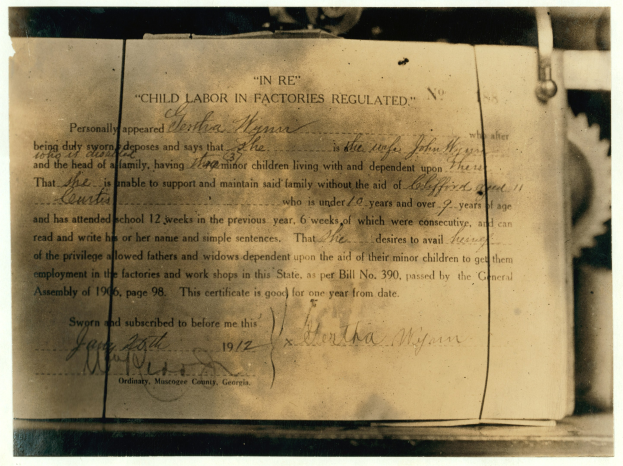 "IN RE"
"CHILD LABOR IN FACTORIES REGULATED." No
Personally appeared Gertha Wynn who after
being duly sworn deposes and says that she is the wife John Wynn
who is disabled
and the head of a family, having (3) minor children living with and dependent upon them
That she is unable to support and maintain said family without the aid of Clifford aged 11
Curtis who is under 10 years and over 9 years of age
and has attended school 12 weeks in the previous year, 6 weeks of which were consecutive, and can
read and write his or her name and simple sentences. That she desires to avail
of the privilege allowed fathers and widows dependent upon the aid of their minor children to get them
employment in the factories and work shops in this State, as per Bill No. 390, passed by the General
Assembly of 1906, page 98. This certificate is good for one year from date.
Sworn and subscribed to before me this
Jany 25th 1912 x Gertha Wynn
Ordinary, Muscogee County, Georgia.